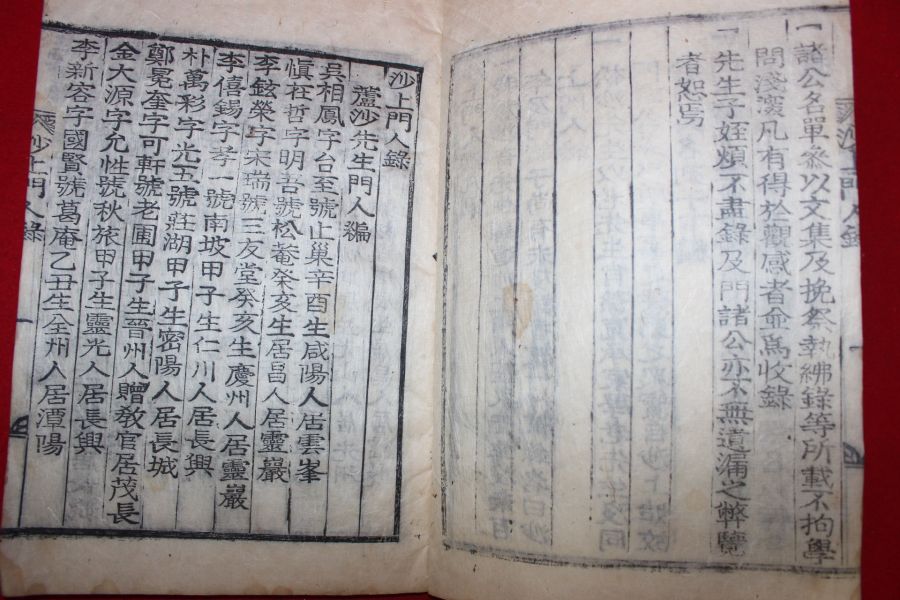 一諸公名單叅以文集及挽祭執紼錄等所載不拘學
問淺深凡有得於觀感者並爲收錄
一先生子姪煩不盡錄及門諸公亦不無遺漏之弊覽
者恕焉
沙上門人錄
沙上門人錄
蘆沙先生門人編
吳相鳳字台至號止巢辛酉生咸陽人居雲峯
愼在哲字明吾號松菴癸亥生居昌人居靈巖
李鉉榮字宋瑞號三友堂癸亥生慶州人居靈巖
李僖錫字孝一號南坡甲子生仁川人居長興
朴萬彩字光五號莊湖甲子生密陽人居長城
鄭冕奎字可軒號老圃甲子生晉州人贈敎官居茂長
金大源字允性號秋旅甲子生靈光人居長興
李新容字國賢號葛庵乙丑生全州人居潭陽
沙上門人錄
一